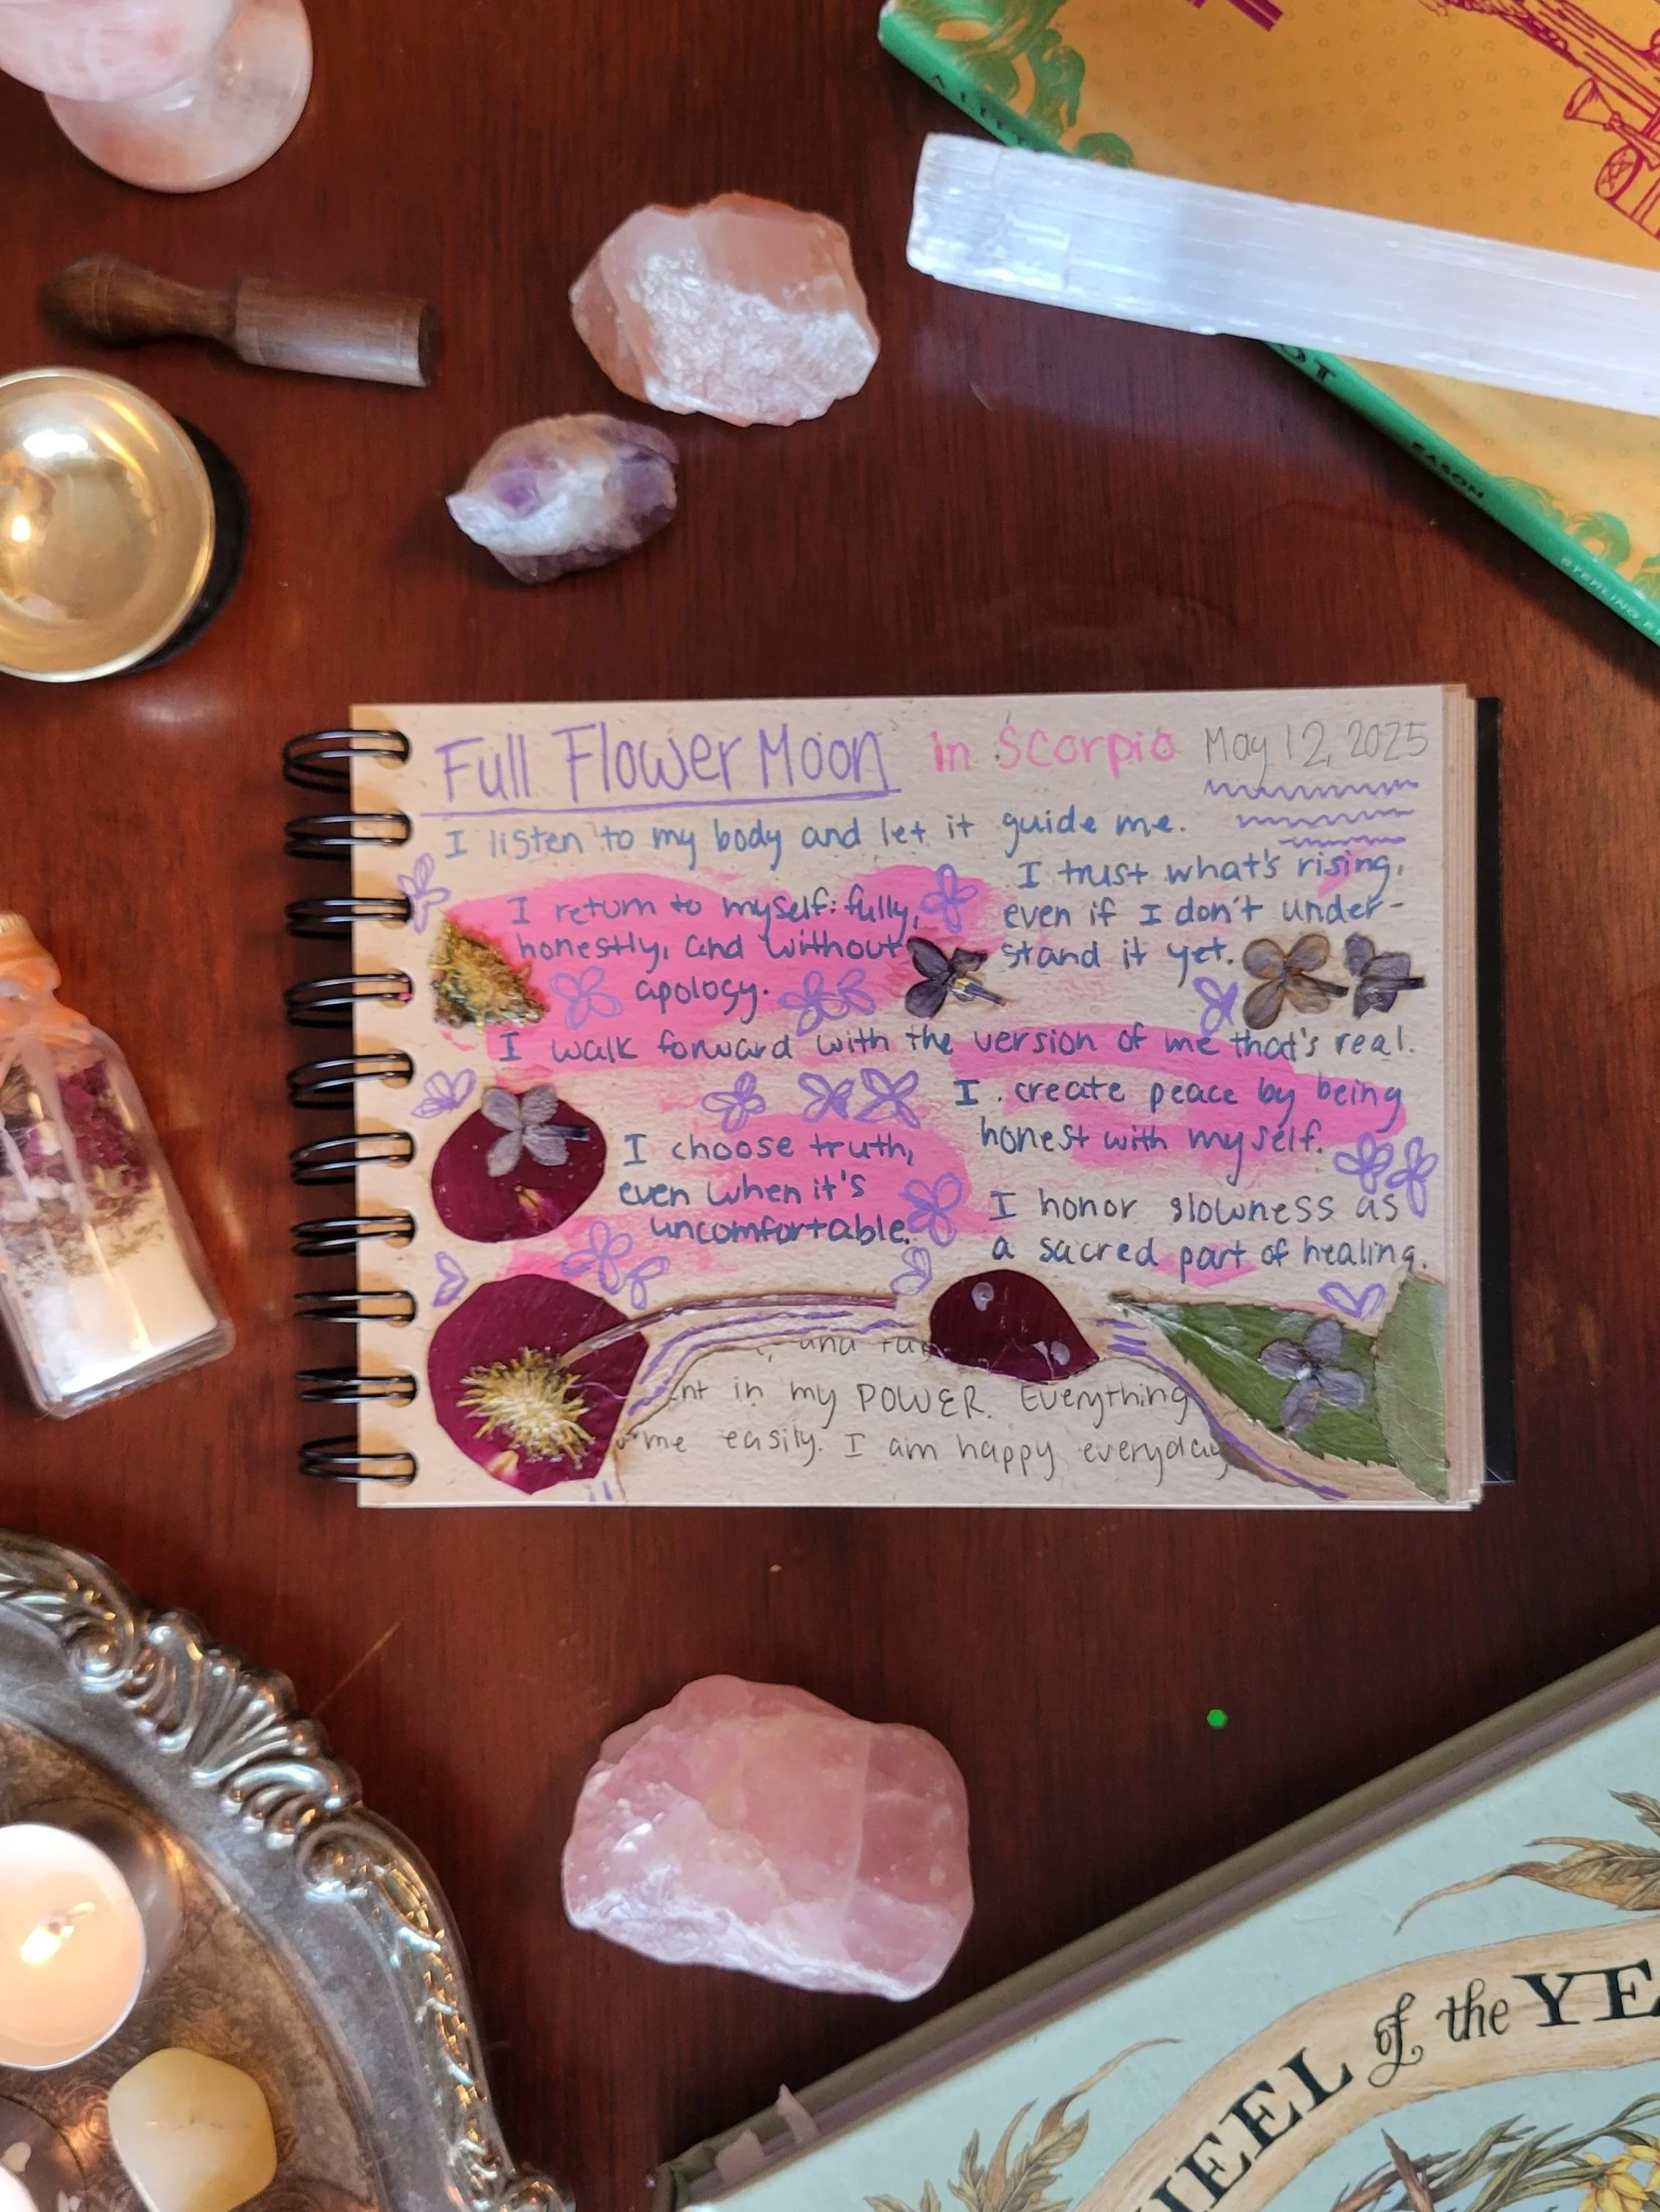 Full Flower Moon in Scorpio May 12, 2025
I listen to my body and let it guide me.
I return to myself: fully,
honestly, and without
apology.
I trust what's rising,
even if I don't under-
stand it yet.
I walk forward with the version of me that's real.
I create peace by being
honest with myself.
I choose truth,
even when it's
uncomfortable.
I honor slowness as
a sacred part of healing.
and
in my POWER. Everything
me easily. I am happy everyday
EASON
STERLING
WHEEL of the YE